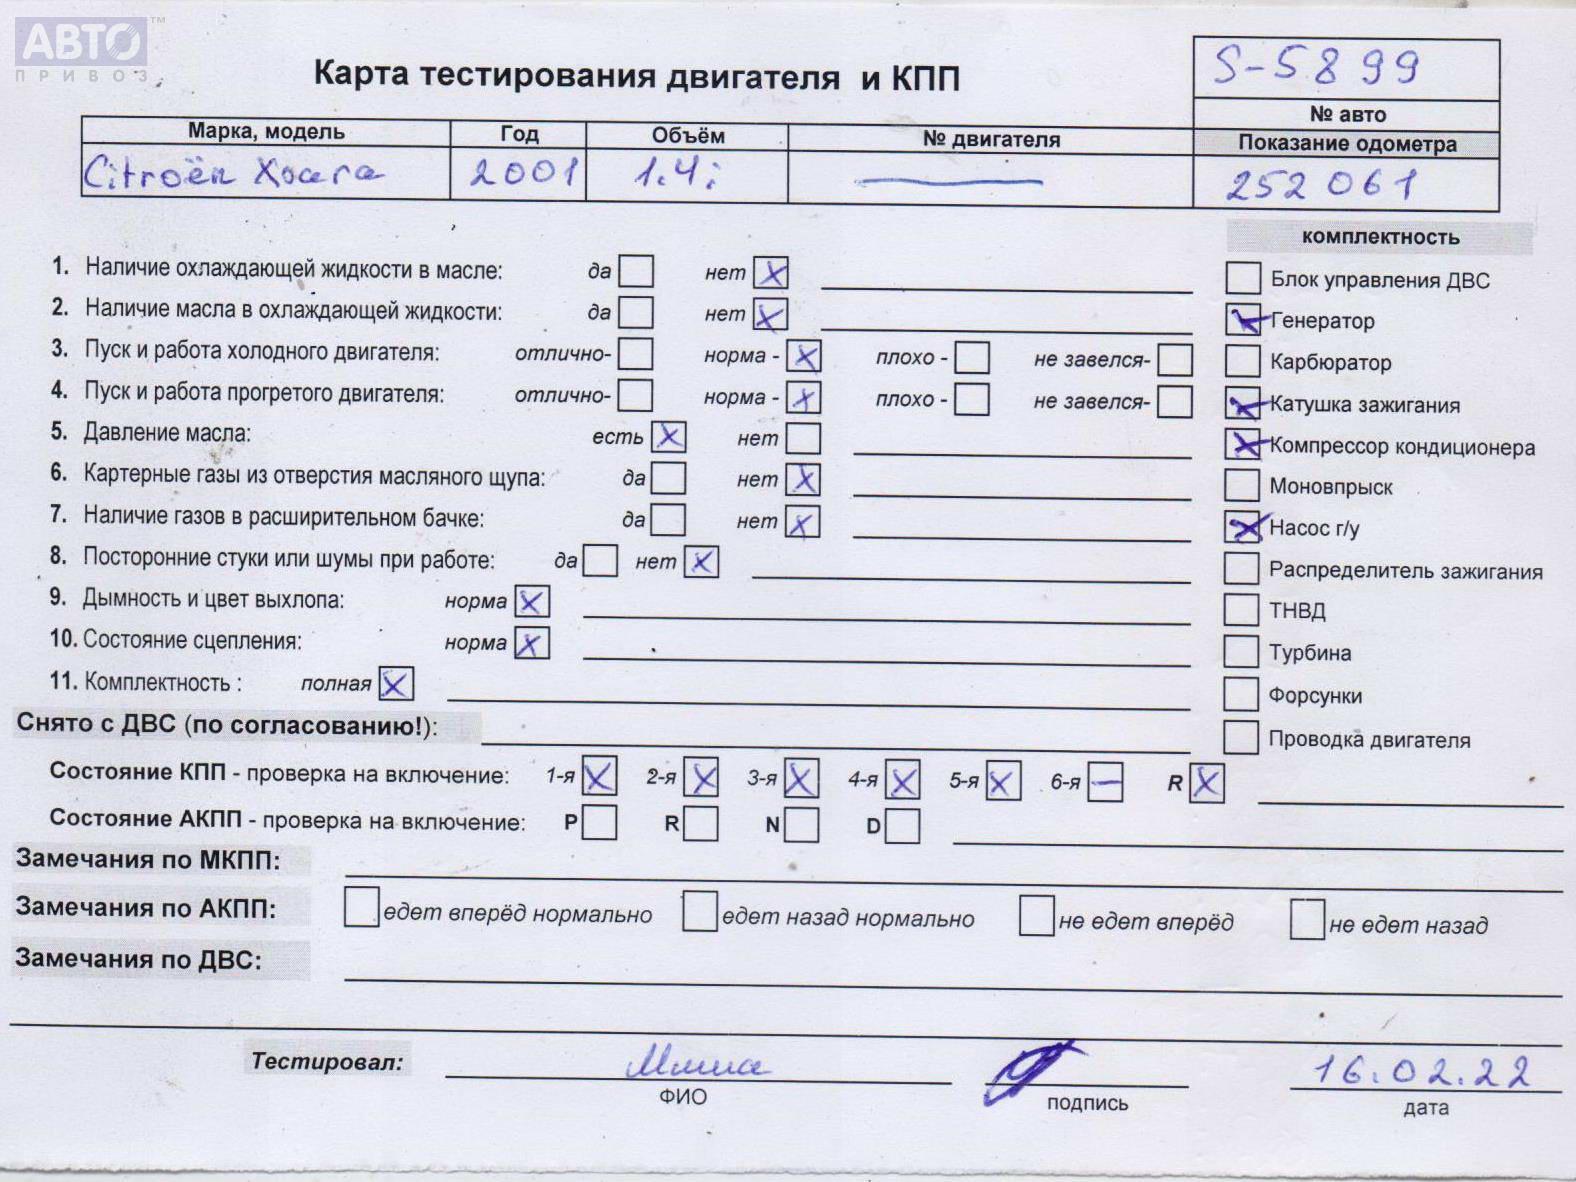 АВТО ™
ПРИВОЗ
Карта тестирования двигателя и КПП
S-5899
№ авто
Марка, модель Год Объём № двигателя Показание одометра
Citroën Xsara 2001 1.4i — 252 061
комплектность
1. Наличие охлаждающей жидкости в масле: да нет X
Блок управления ДВС
2. Наличие масла в охлаждающей жидкости: да нет X
X Генератор
3. Пуск и работа холодного двигателя: отлично- норма - X плохо - не завелся-
Карбюратор
4. Пуск и работа прогретого двигателя: отлично- норма - X плохо - не завелся-
X Катушка зажигания
5. Давление масла: есть X нет
X Компрессор кондиционера
6. Картерные газы из отверстия масляного щупа: да нет X
Моновпрыск
7. Наличие газов в расширительном бачке: да нет X
X Насос г/у
8. Посторонние стуки или шумы при работе: да нет X
Распределитель зажигания
9. Дымность и цвет выхлопа: норма X
ТНВД
10. Состояние сцепления: норма X
Турбина
11. Комплектность : полная X
Форсунки
Снято с ДВС (по согласованию!):
Проводка двигателя
Состояние КПП - проверка на включение: 1-я X 2-я X 3-я X 4-я X 5-я X 6-я — R X
Состояние АКПП - проверка на включение: P R N D
Замечания по МКПП:
Замечания по АКПП: едет вперёд нормально едет назад нормально не едет вперёд не едет назад
Замечания по ДВС:
Тестировал: Миша 16.02.22
ФИО подпись дата